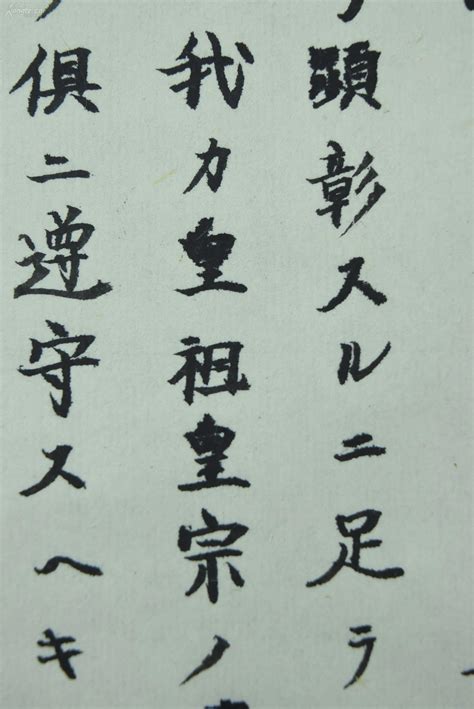 顯彰スルニ足ラ
我カ皇祖皇宗ノ
俱ニ遵守スヘキ